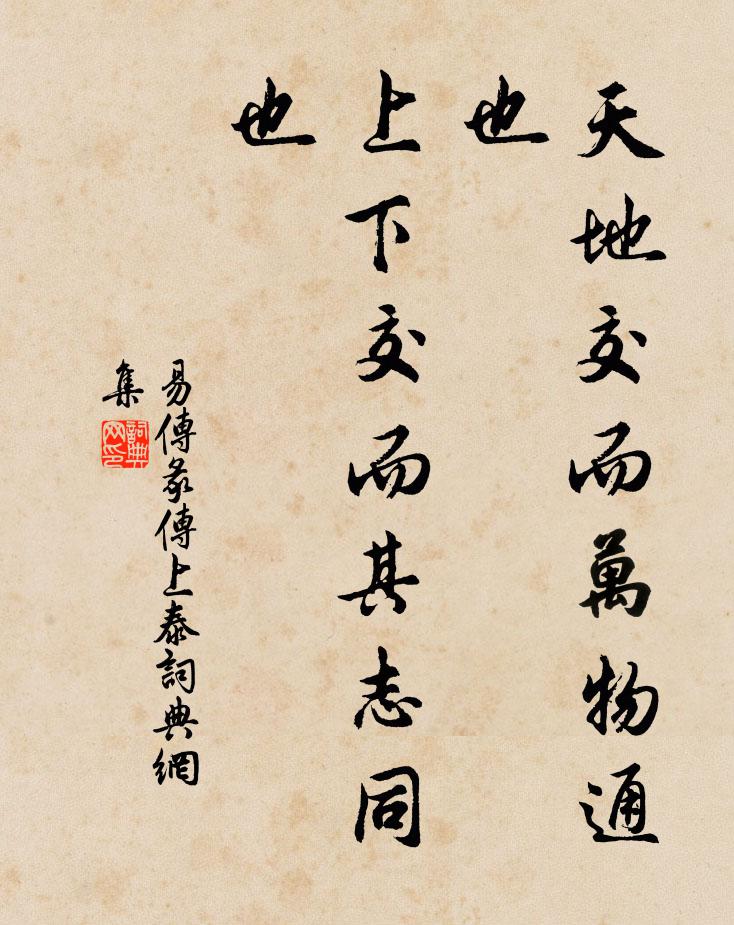 天地交而萬物通
也
上下交而其志同
也
易傳彖傳上泰詞典網
集
詞典网印